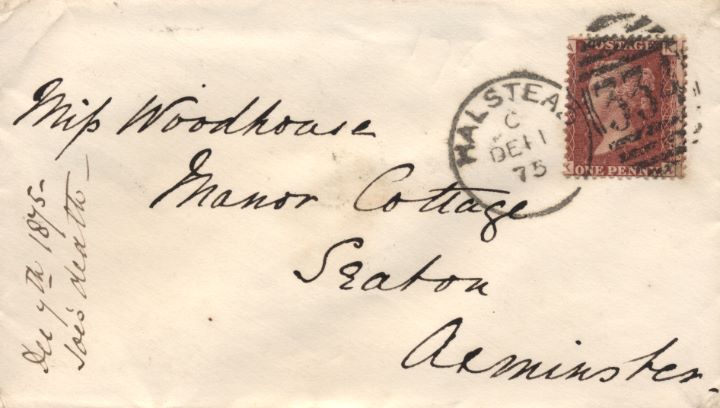 Miss Woodhouse
Manor Cottage
Seaton
Axminster.
Dec 7th 1875-
Joe's death-
HALSTEAD
C
DE 11
75
POSTAGE
33
ONE PENNY